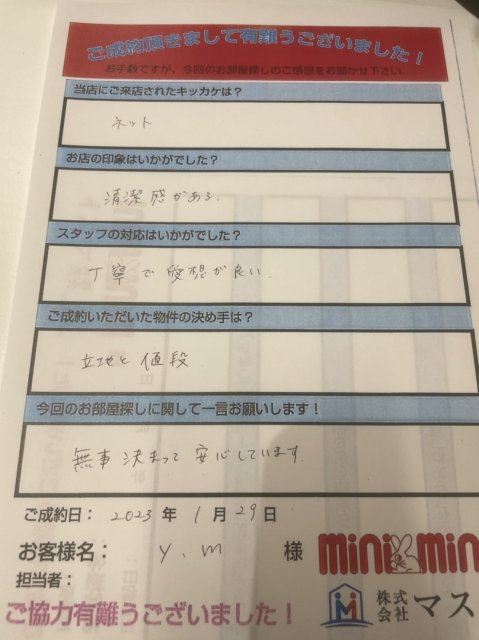 ご成約頂きまして有難うございました！
お手数ですが、今回のお部屋探しのご感想をお聞かせ下さい
当店にご来店されたキッカケは？
ネット
お店の印象はいかがでした？
清潔感がある.
スタッフの対応はいかがでした？
丁寧で愛想が良い.
ご成約いただいた物件の決め手は？
立地と値段
今回のお部屋探しに関して一言お願いします！
無事決まって安心しています
ご成約日： 2023 年 1 月 29 日
お客様名： Y.M 様
minimini
担当者：
株式会社 マス
ご協力有難うございました！